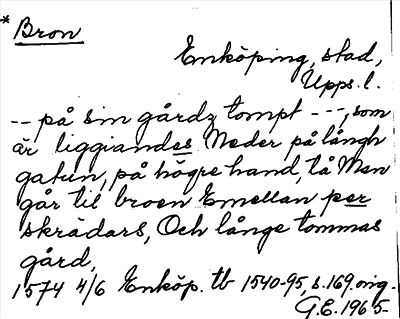 *Bron
Enköping, stad,
Upps. l.
-- på sin gårdz tompt ---, som
är liggiandes Neder på långh
gatun, på högre hand, tå Man
går til broen Emellan per
skrädars, Och långe tommas
gård,
1574 4/6 Enköp. tb 1540-95, s. 169 orig.
G.E. 1965-